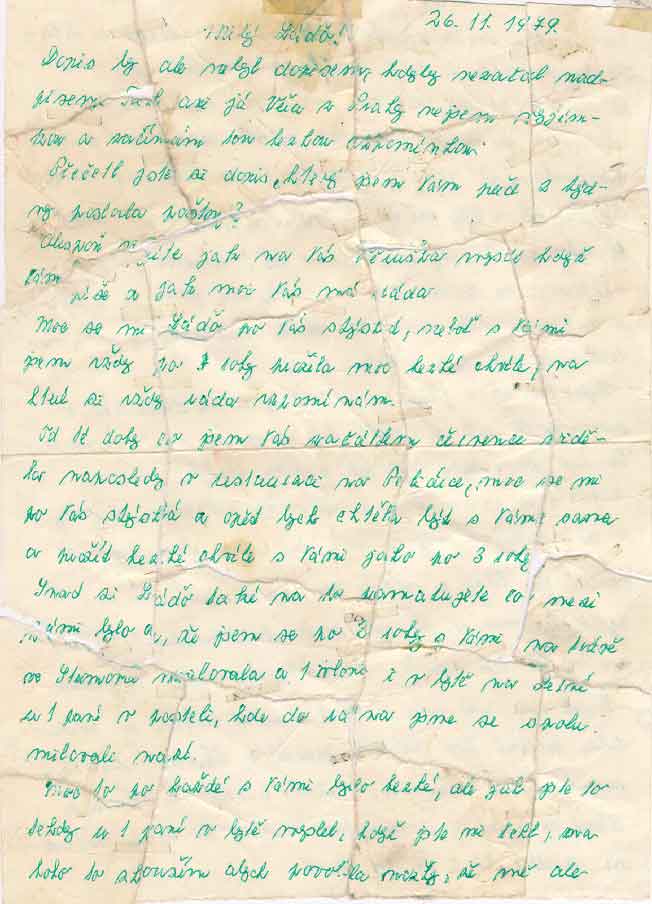 26. 11. 1979.
Milý Láďo!
Dopis by ale nebyl dopisem, kdyby nezačal nad-
pisem. Tak ani já Věra z Prahy nejsem výjim-
kou a začínám tou hezkou vzpomínkou.
Přečetl jste si dopis, který jsem Vám před 3 týd-
ny poslala poštou?
Alespoň jak na Vás Věruška myslí když
Vám píše a jak moc Vás má ráda.
Moc se mi Láďo po Vás stýská, neboť s Vámi
jsem vždy po 3 roky prožila moc hezké chvíle, na
které si vždy ráda vzpomínám.
Od té doby co jsem Vás začátkem července vidě-
la naposledy v restauraci na Petřince, moc se mi
po Vás stýská a opět bych chtěla být s Vámi sama
a prožít hezké chvíle s Vámi jako po 3 roky.
Snad si Láďo také na to pamatujete co mezi
námi bylo a, že jsem se po 2 roky s Vámi na trávě
ve Stromovu milovala a 1 i v bytě na Letné
u 1 paní v posteli, kde do rána jsme se spolu
milovali nazí.
Moc to po každé s Vámi bylo hezké, ale jak jste to
tehdy u 1 paní v bytě myslel, když jste mi řekl,
koho to zkouším abych povolila nohy, že mě ale